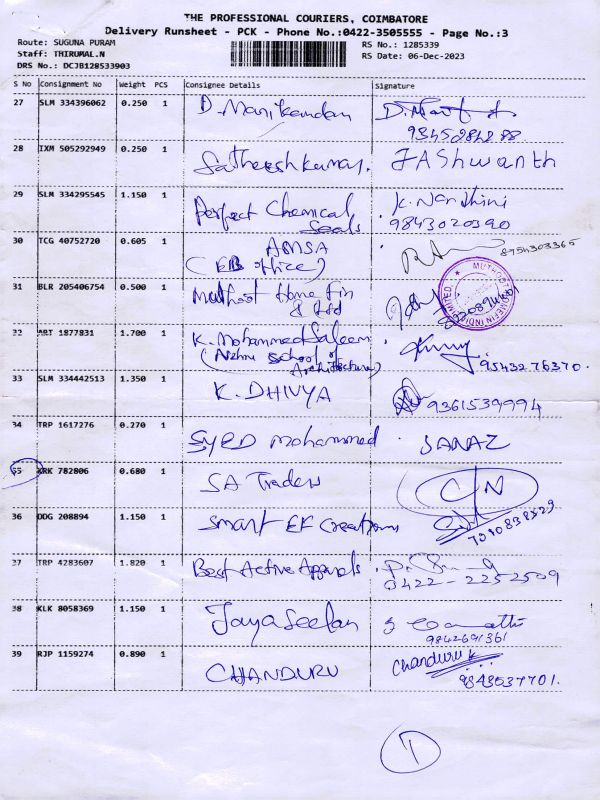 THE PROFESSIONAL COURIERS, COIMBATORE
Delivery Runsheet - PCK - Phone No.:0422-3505555 - Page No.:3
Route: SUGUNA PURAM
RS No.: 1285339
Staff: THIRUMAL.N
RS Date: 06-Dec-2023
DRS No.: DCJB128533903
S No Consignment No Weight PCS Consignee Details Signature
27 SLM 334396062 0.250 1 D. Manikandan
28 IXM 505292949 0.250 1 Satheeshkumar. J AShwanth
29 SLM 334295545 1.150 1 Perfect Chemical Seals K. Nandhini
9843020390
30 TCG 40752720 0.605 1 AMSA
(EB office) 8754303365
31 BLR 205406754 0.500 1 Muthoot Home Fin
& Ltd
32 ART 1877831 1.700 1 K. Mohammed Saleem
(Nehru School of
Architecture) 9543276370.
33 SLM 334442513 1.350 1 K. DHIVYA 9361539994
34 TRP 1617276 0.270 1 Syed Mohammed. SANAZ
35 KRK 782806 0.680 1 SA Traders
36 DDG 208894 1.150 1 Smart EF Creations
7010838529
37 TRP 4283607 1.820 1 Best Active Apparals
0422-2252509
38 KLK 8058369 1.150 1 Jayaseelan
9842691361
39 RJP 1159274 0.890 1 CHANDURU Chanduru K
9843037701.
1